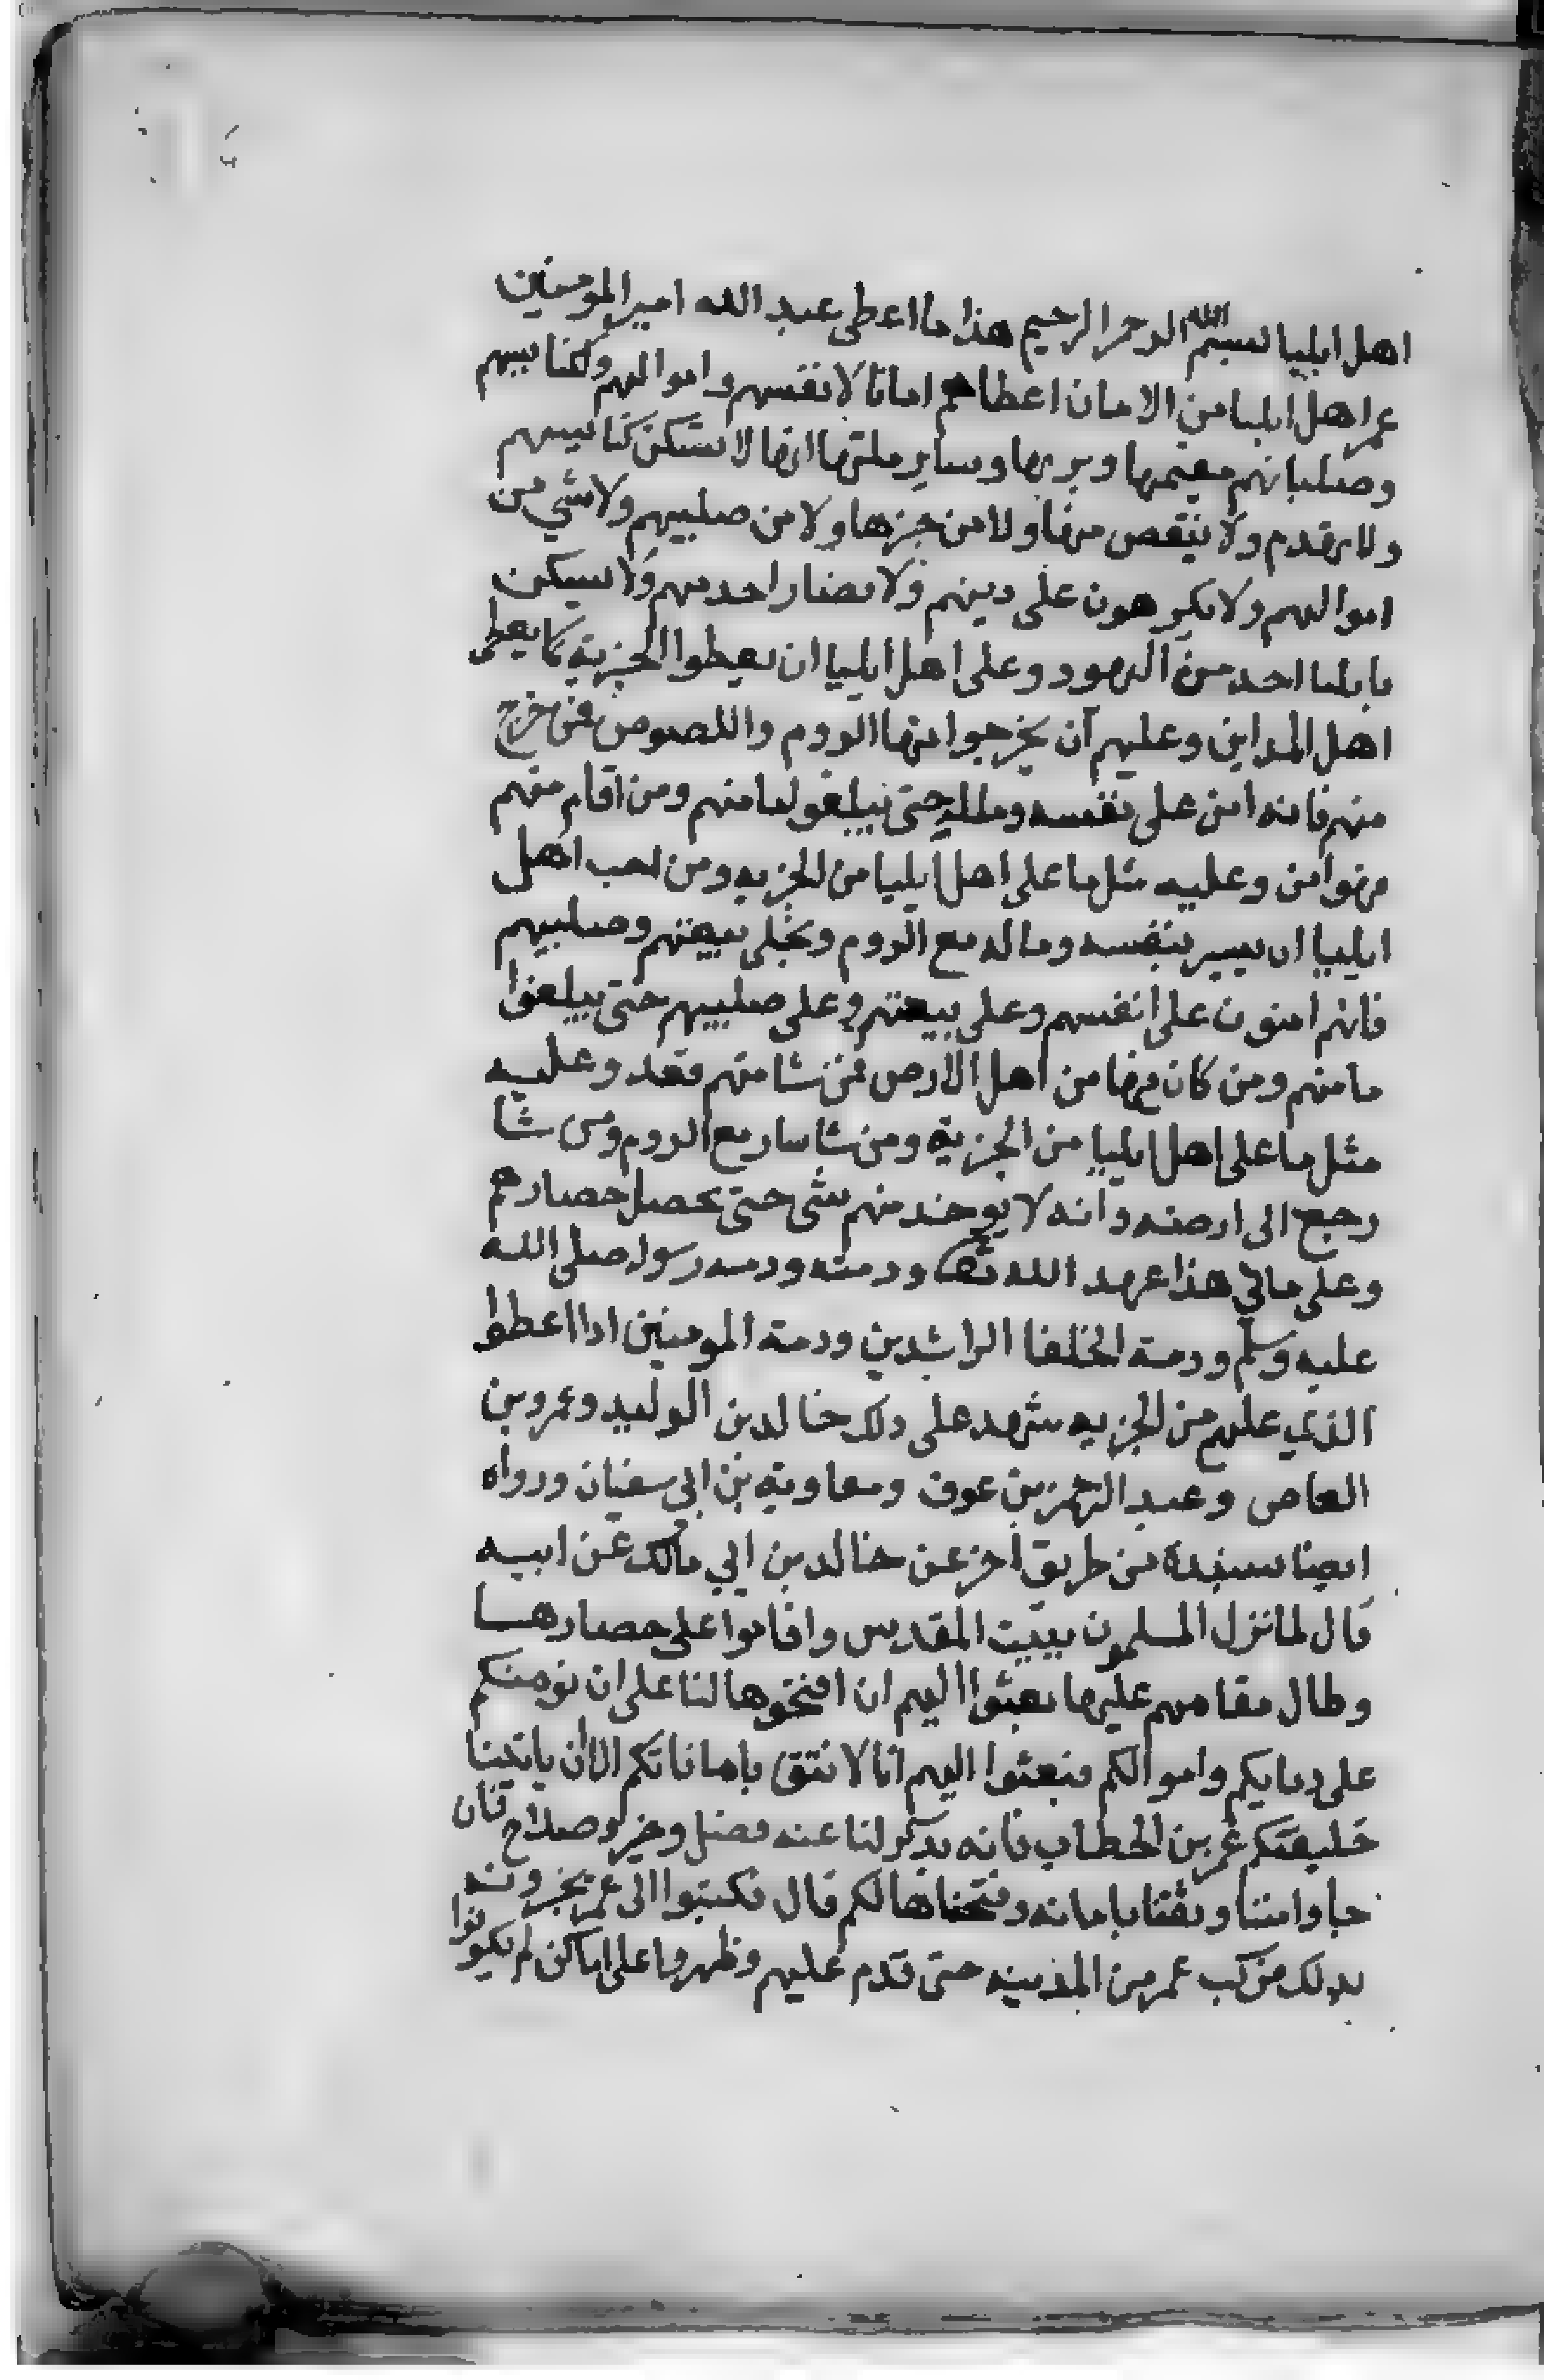 اهل ايليا بسم الله الرحمن الرحيم هذا ما اعطى عبد الله امير المومنين
عمر اهل ايليا من الامان اعطاهم امانا لانفسهم واموالهم وكنايسهم
وصلبانهم مقيمها وبريها وساير ملتها انها لا تسكن كنايسهم
ولا تهدم ولا ينتقص منها ولا من حيزها ولا من صليبهم ولا شي من
اموالهم ولا يكرهون على دينهم ولا يضار احد منهم ولا يسكن
بايليا احد من اليهود وعلى اهل ايليا ان يعطوا الجزية كما يعطى
اهل المداين وعليهم ان يخرجوا منها الروم واللصوص فمن خرج
منهم فانه امن على نفسه وماله حتى يبلغوا مامنهم ومن اقام منهم
فهو امن وعليه مثل ما على اهل ايليا من الجزيه ومن احب اهل
ايليا ان يسير بنفسه وماله مع الروم ويخلى بيعتهم وصليبهم
فانهم امنون على انفسهم وعلى بيعتهم وعلى صليبهم حتى يبلغوا
مامنهم ومن كان فيها من اهل الارض فمن شا منهم قعد وعليه
مثل ما على اهل ايليا من الجزية ومن شا سار مع الروم ومن شا
رجع الى ارضه وانه لا يوخذ منهم شى حتى يحصل حصادهم
وعلى ما في هذا عهد الله تعالى وذمته وذمه رسوله صلى الله
عليه وسلم وذمة الخلفا الراشدين وذمة المومنين اذا اعطوا
الذي عليهم من الجزيه شهد على ذلك خالد بن الوليد وعمرو بن
العاص وعبد الرحمن بن عوف ومعاوية بن ابي سفيان ورواه
ايضا بسنده من طريق اخر عن خالد بن ابي مالك عن ابيه
قال لما نزل المسلمون ببيت المقدس واقاموا على حصارها
وطال مقامهم عليها بعثوا اليهم ان افتحوها لنا على ان نومنكم
على دمايكم واموالكم فبعثوا اليهم انا لا نثق باماناتكم الا ان ياتينا
خليفتكم عمر بن الخطاب فانه يذكر لنا عنه فضل وخير وصلاح فان
جا وامننا وثقنا بامانه وفتحناها لكم قال فكتبوا الى عمر يخبرونه
بذلك فركب عمر من المدينه حتى قدم عليهم وظهروا على اماكن لم يكونوا